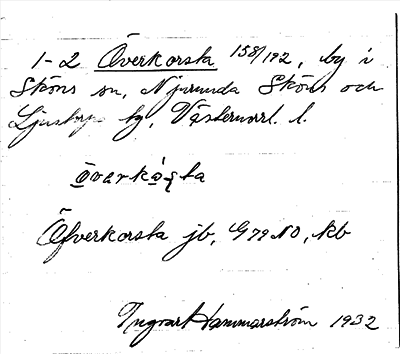 1-2 Överkorsta 158/192, by i
Sköns sn, Njurunda Sköns och
Ljustorps tg, Västernorrl. l.
Överkorsta jb, G79NO, kb
Ingvar Hammarström 1932